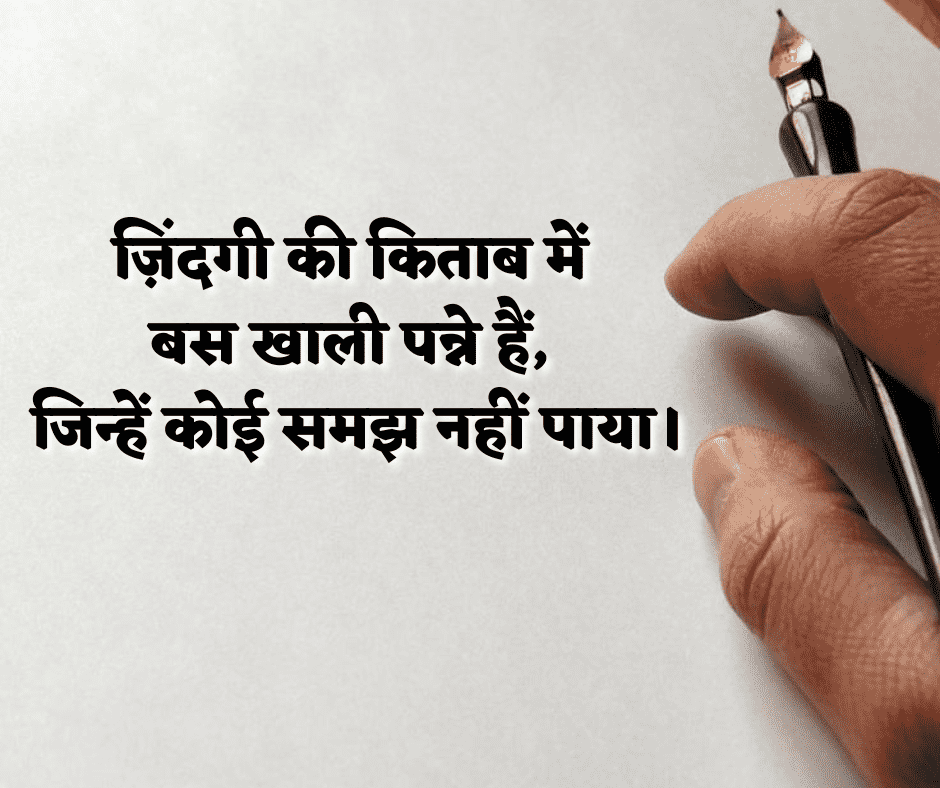 ज़िंदगी की किताब में
बस खाली पन्ने हैं,
जिन्हें कोई समझ नहीं पाया।